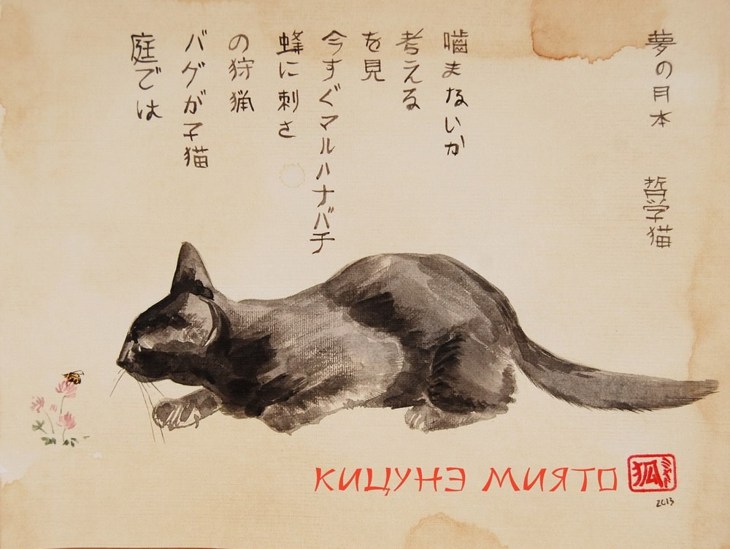 夢の月本
哲学猫
噛まないか
考える
を見
今すぐマルハナバチ
蜂に刺さ
の狩猟
バグが子猫
庭では
КИЦУНЭ МИЯТО
狐
2013